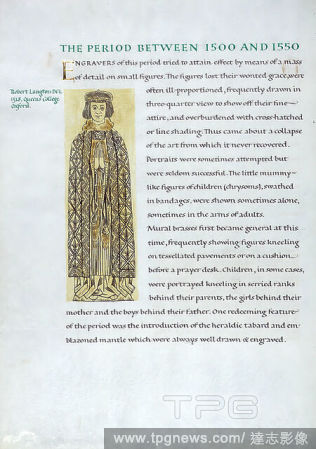 THE PERIOD BETWEEN 1500 AND 1550
ENGRAVERS of this period tried to attain effect by means of a mass
of detail on small figures. The figures lost their wonted grace, were
Robert Langton D.C.L.
1518, Queens College
Oxford.
often ill-proportioned, frequently drawn in
three-quarter view to show off their fine
attire, and overburdened with cross-hatched
or line shading. Thus came about a collapse
of the art from which it never recovered.
Portraits were sometimes attempted but
were seldom successful. The little mummy-
like figures of children (chrysoms), swathed
in bandages, were shown sometimes alone,
sometimes in the arms of adults.
Mural brasses first became general at this
time, frequently showing figures kneeling
on tessellated pavements or on a cushion
before a prayer desk. Children, in some cases,
were portrayed kneeling in serried ranks
behind their parents, the girls behind their
mother and the boys behind their father. One redeeming feature
of the period was the introduction of the heraldic tabard and em-
blazoned mantle which were always well drawn & engraved.
TPG
www.tpgnews.com/達志影像